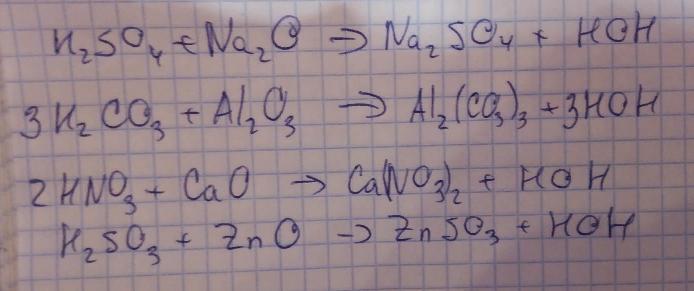 H₂SO₄ + Na₂O ⇒ Na₂SO₄ + HOH
3H₂CO₃ + Al₂O₃ ⇒ Al₂(CO₃)₃ + 3HOH
2HNO₃ + CaO → Ca(NO₃)₂ + HOH
H₂SO₃ + ZnO → ZnSO₃ + HOH